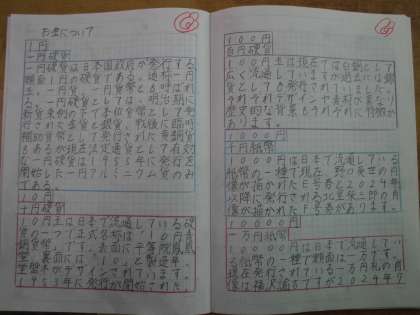 お金について
1円
一円硬貨
一円硬貨は日本国政府が発行する
額面1円の硬貨である。通称一円
玉。一円黄銅貨幣とも呼ばれ
る。一円硬貨としては、明治初期に
新貨条例の下で本位貨幣として発
行された本位金貨と、戦後に臨時
補助貨幣として発行された黄銅貨
もあるが現在法定通貨として有効
な一円硬貨は1955年に発行が
開始した一円アルミニウム貨のみ
である。
10円
十円硬貨
10円玉は日本で流通している硬
貨の一つで正式名称は「十円青
銅貨幣」です。表面に平等院鳳凰
堂、裏面には「10」と製造年、
常盤木がデザインされています。
1953年に発行が開始された
100円
百円硬貨
100円玉は現在では白銅として
広く流通していますが過去には銀
貨としても発行されていました。
それぞれデザインや素材が異なり
歴史的な背景もそれぞれに特徴が
あります。
1000円
千円紙幣
1000円は日本で流通している紙
幣の一種で現在、野口英世の肖
像が描かれたE号券と2024年
以降に発行される北里柴三郎の肖
像が描かれたF号券があります。
10000円
一万円紙幣
10000円は日本で流通してい
る紙幣の一種で額面は一万円です。
現在発行されている一万円札の肖
像は福沢諭吉ですが2024年7